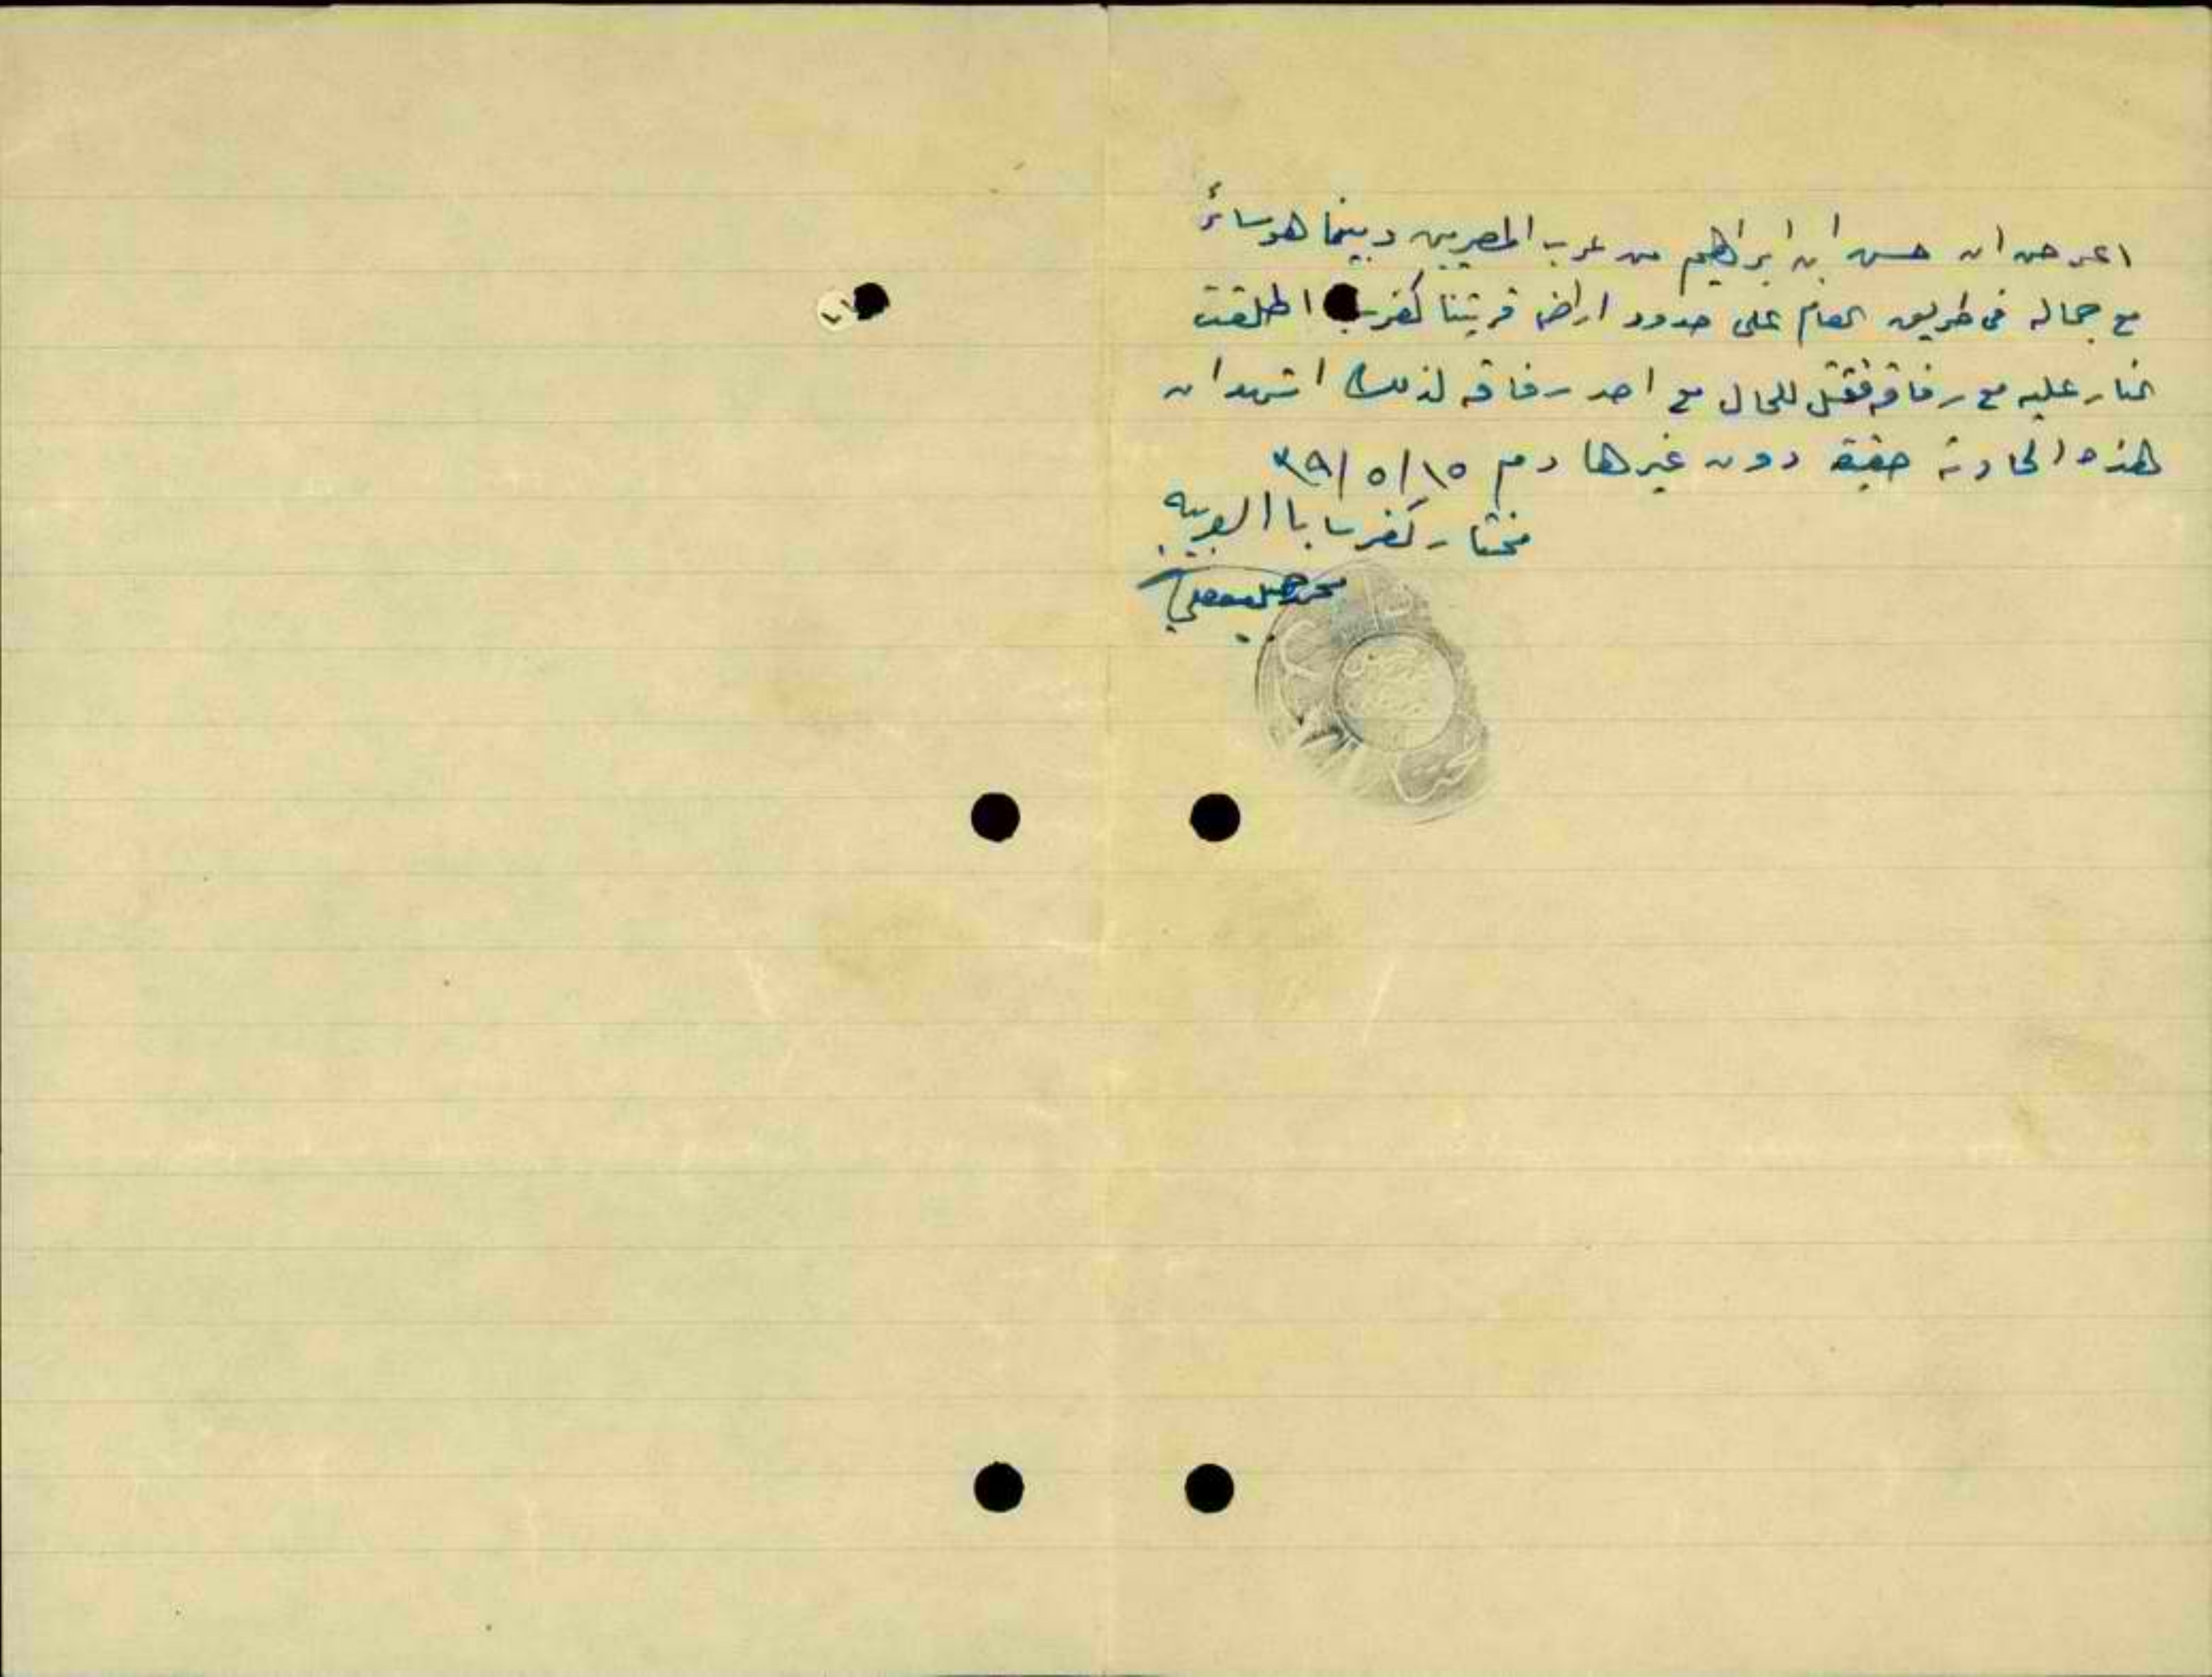 اعرض ان حسن ابن ابراهيم من عرب المصريين وبينما هو سائر
مع جماله في طريق العام على حدود اراضي قريتنا كفرسا اطلقت
النار عليه مع رفاقه فقتل للحال مع احد رفاقه لذلك اشهد ان
هذه الحادثة حقيقة دون غيرها دم ١٥/٥/٣٩
مختار كفرسابا العربيه
محمد